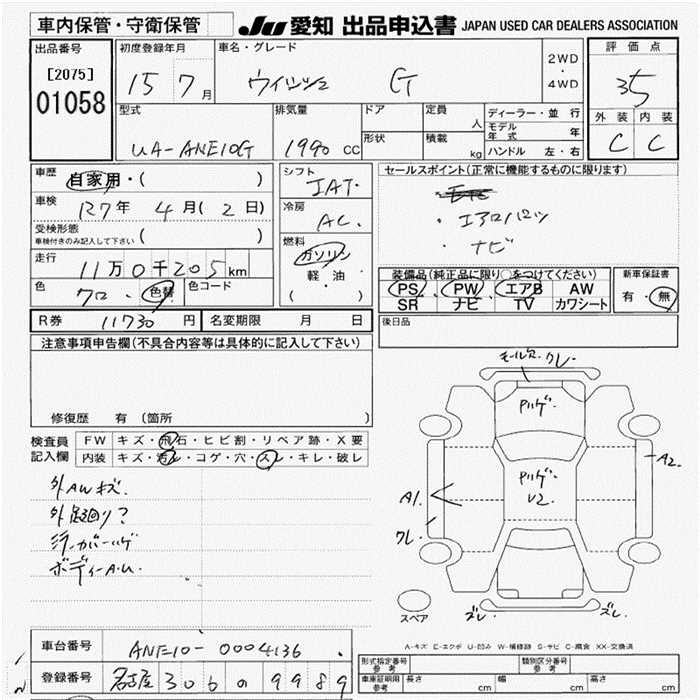 車内保管・守衛保管
JU 愛知 出品申込書 JAPAN USED CAR DEALERS ASSOCIATION
出品番号
[2075]
01058
初度登録年月
15 7月
車名・グレード
ウィッシュ G
2WD
・
4WD
評価点
3.5
外装 内装
C C
型式
UA-ANE10G
排気量
1990 CC
ドア
形状
定員
人
積載
kg
ディーラー・並行
モデル年式 年
ハンドル 左・右
車歴
自家用・( )
車検
R7年 4月(2日)
受検形態
車検付きのみ記入して下さい ( )
走行
11万0千205km
色
クロ・色替
色コード
シフト
IAT
冷房
AC
燃料
ガソリン
軽・油
( )
セールスポイント(正常に機能するものに限ります)
・エアロパーツ
・ナビ
装備品(純正品に限り○をつけてください)
PS PW エアB AW
SR ナビ TV カワシート
新車保証書
有・無
R券 11730円
名変期限 月 日
後日品
注意事項申告欄(不具合内容等は具体的に記入して下さい)
修復歴 有(箇所 )
検査員
記入欄
FW キズ・飛石・ヒビ割・リペア跡・X要
内装 キズ・汚レ・コゲ・穴・スレ・キレ・破レ
外AWキズ.
外足廻り?
ミラーカバーハゲ
ボディーA.U.
モール欠. ワレ.
Pハゲ.
Pハゲ.
U2.
A1.
ワレ.
A2.
ズレ.
ズレ.
スペア
A-キズ E-エクボ U-凹み W-補修跡 S-サビ C-腐食 XX-交換済
車台番号
ANE10-0004136.
登録番号
名古屋 306 の 9989
型式指定番号
参考
類別区分番号
参考
車庫証明用
参考
長さ cm
幅 cm
高さ cm